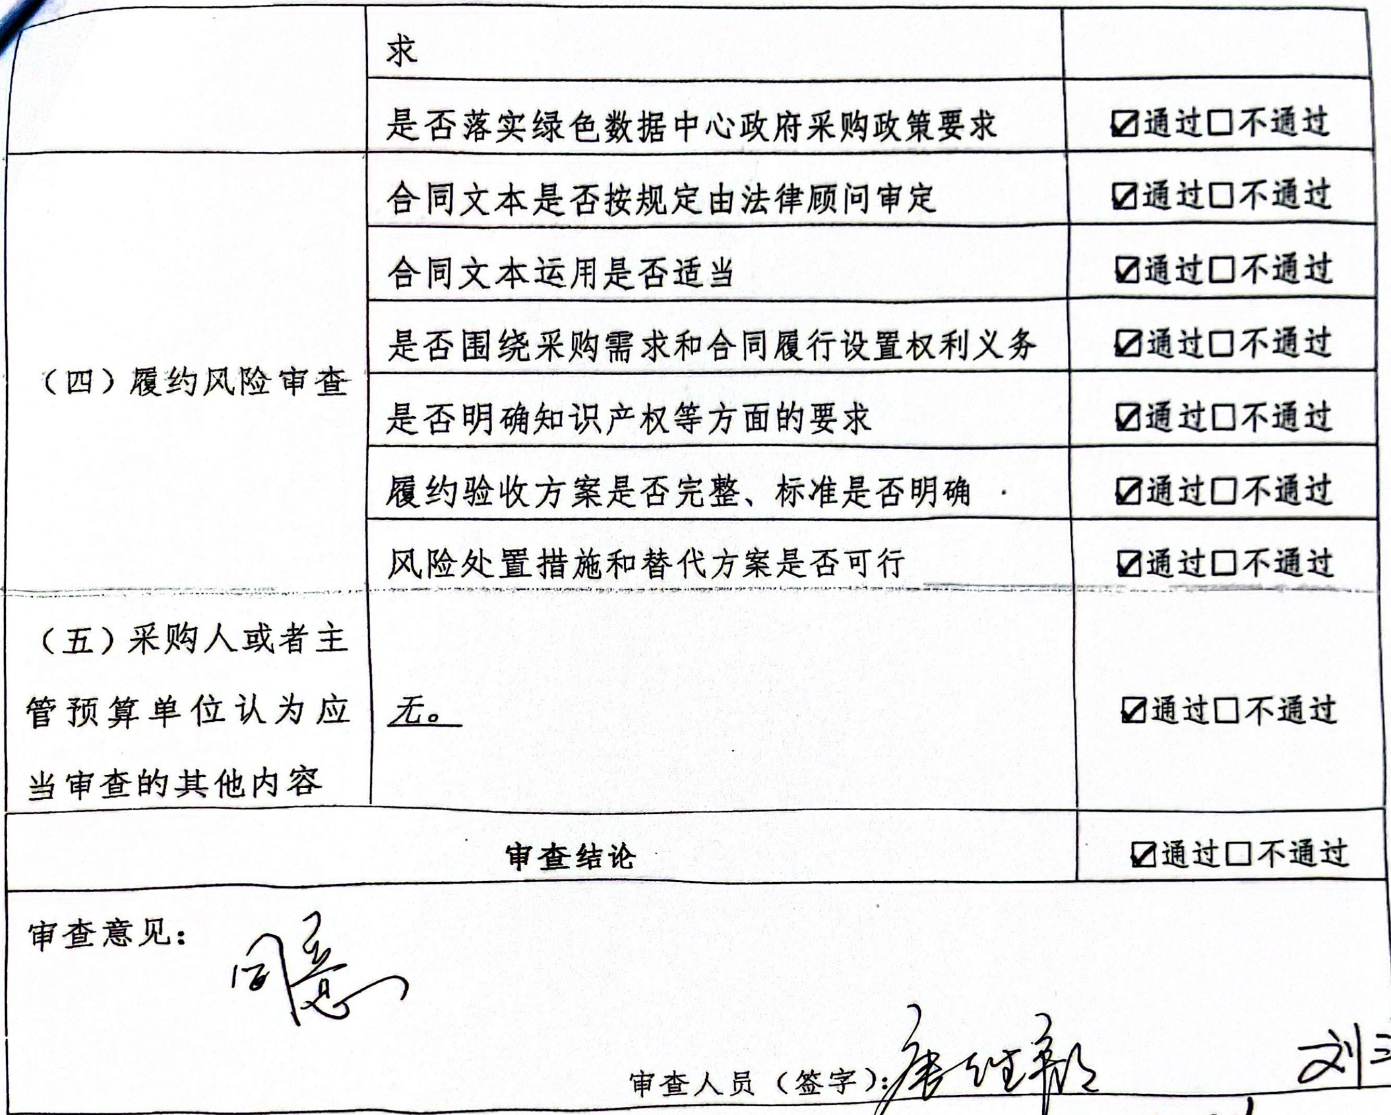 求
是否落实绿色数据中心政府采购政策要求 ☑通过☐不通过
合同文本是否按规定由法律顾问审定 ☑通过☐不通过
合同文本运用是否适当 ☑通过☐不通过
是否围绕采购需求和合同履行设置权利义务 ☑通过☐不通过
(四)履约风险审查
是否明确知识产权等方面的要求 ☑通过☐不通过
履约验收方案是否完整、标准是否明确 ☑通过☐不通过
风险处置措施和替代方案是否可行 ☑通过☐不通过
(五)采购人或者主
管预算单位认为应
当审查的其他内容
无。 ☑通过☐不通过
审查结论 ☑通过☐不通过
审查意见:
同意
审查人员(签字):
刘